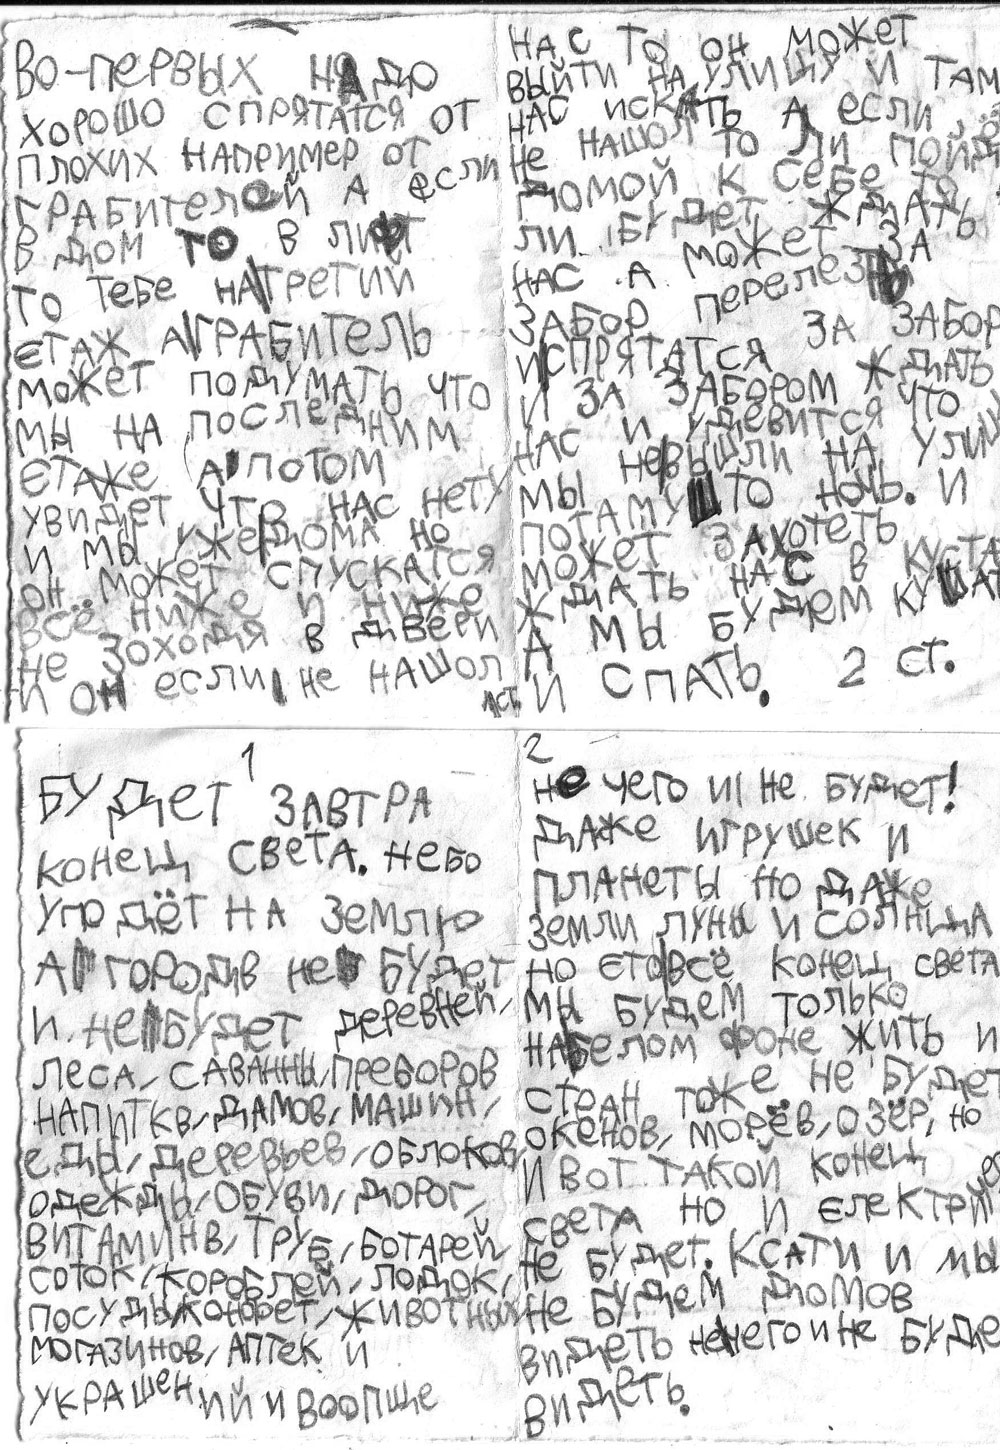 Во-первых надо
хорошо спрятатся от
плохих например от
грабителей а если
в дом то в лифт
то тебе на третий
етаж а грабитель
может подумать что
мы на последним
етаже а потом
увидет что нас нету
и мы уже дома но
он может спускатся
всё ниже и ниже
не зоходя в двери
и он если не нашол
1 ст.
нас то он может
выйти на улицу и там
нас искать а если
не нашол то ли пойдё
домой к себе то
ли будет ждать
нас а может за
забор перелезть
за забор
и спрятатся ждать
и за забором что
нас и удевится
мы невышли на ули
потаму што ночь. и
может захотеть
ждать нас в куста
а мы будем кушат
и спать. 2 ст.
1
Будет завтра
конец света. небо
уподёт на землю
а городв не будет
и не будет деревней,
леса, саванны, преборов
напиткв, дамов, машин,
еды, деревьев, облоков,
одежды, обуви, дорог,
витаминв, труб, ботарей,
соток, короблей, лодок,
посуды конфет, животных
могазинов, аптек и
украшений и воопще
2
не чего и не будет!
даже игрушек и
планеты но даже
земли луны и солнца
но ето всё конец света
мы будем только
на белом фоне жить и
стран тоже не будет
окенов, морёв, озёр, но
и вот такой конец
света но и електрй
не будет. Ксати и мы
не будем домов
видеть нечего и не буде
видеть.